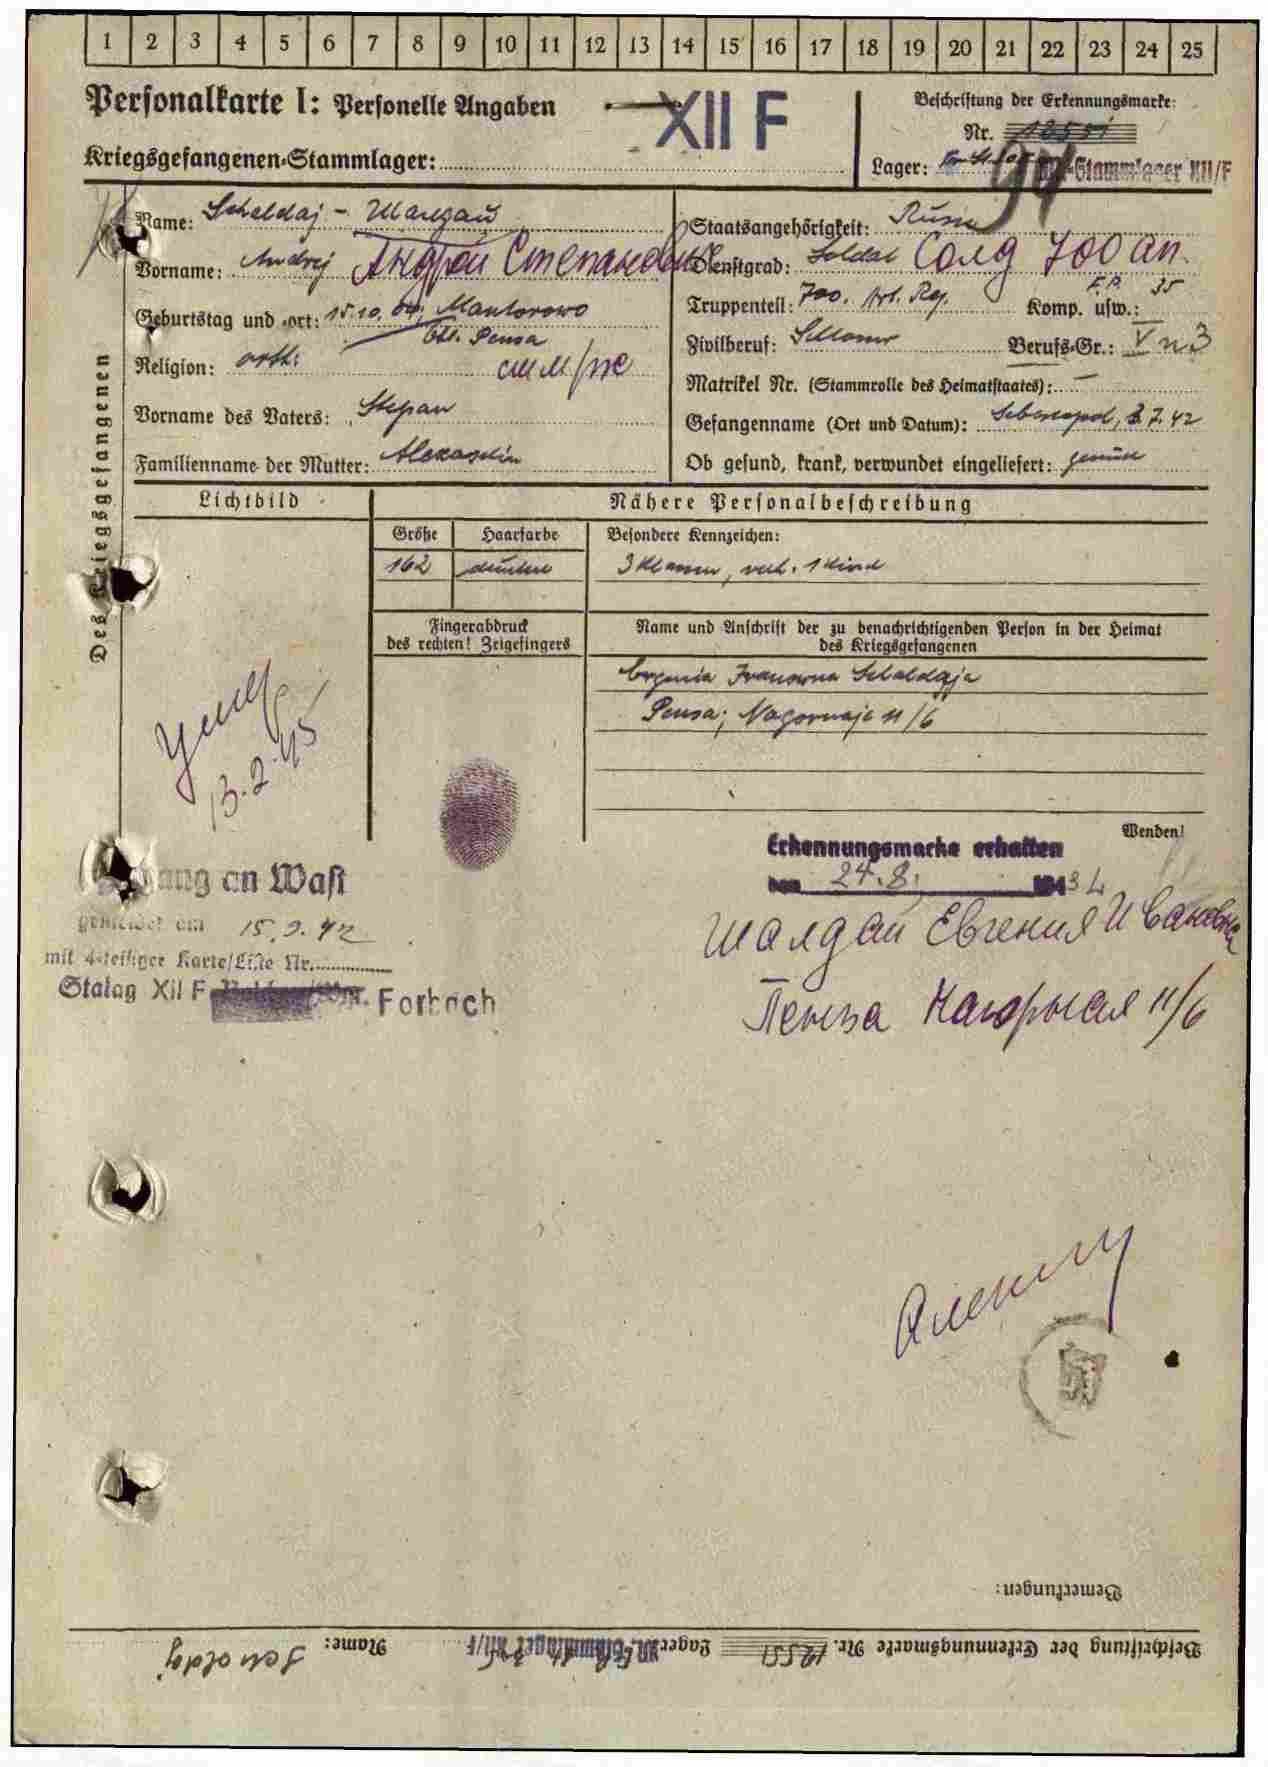 1 2 3 4 5 6 7 8 9 10 11 12 13 14 15 16 17 18 19 20 21 22 23 24 25
Personalkarte I: Personelle Angaben
XII F
Kriegsgefangenen-Stammlager:
Beschriftung der Erkennungsmarke:
Nr. 12551
Lager: Stammlager XII/F
Des Kriegsgefangenen
Name: Schaldaj - Шалдай
Vorname: Andrej Андрей Степанович
Geburtstag und -ort: 15.10. Mantorowo
Obl. Pensa
Religion: orth.
Vorname des Vaters: Stepan
Familienname der Mutter:
Staatsangehörigkeit: Russe
Dienstgrad: Soldat Солд 700 ап.
Truppenteil: 700. Art. Reg. Komp. usw.: 35
Zivilberuf: Schlosser Berufs-Gr.: V n 3
Matrikel Nr. (Stammrolle des Heimatstaates): -
Gefangenname (Ort und Datum): Sebastopol, 3.7.42
Ob gesund, krank, verwundet eingeliefert: gesund
Lichtbild
Nähere Personalbeschreibung
Größe Haarfarbe Besondere Kennzeichen:
162 dunkel 3 Klassen, verh. 1 Kind
Fingerabdruck
des rechten! Zeigefingers
Name und Anschrift der zu benachrichtigenden Person in der Heimat
des Kriegsgefangenen
Evgenia Iwanowna Schaldaja
Pensa, Nagornaja 11/6
умер
13.2.45
Wenden!
Erkennungsmarke erhalten
24.8.
gang an Wast
gemeldet am 15.9.42
mit 4-teiliger Karte/Liste Nr.
Stalag XII F Forbach
Шалдай Евгения Ивановна
Пенза Нагорная 11/6
Bemerkungen:
Beschriftung der Erkennungsmarke Nr. 12551 Lager: Stammlager XII/F Name: Schaldaj